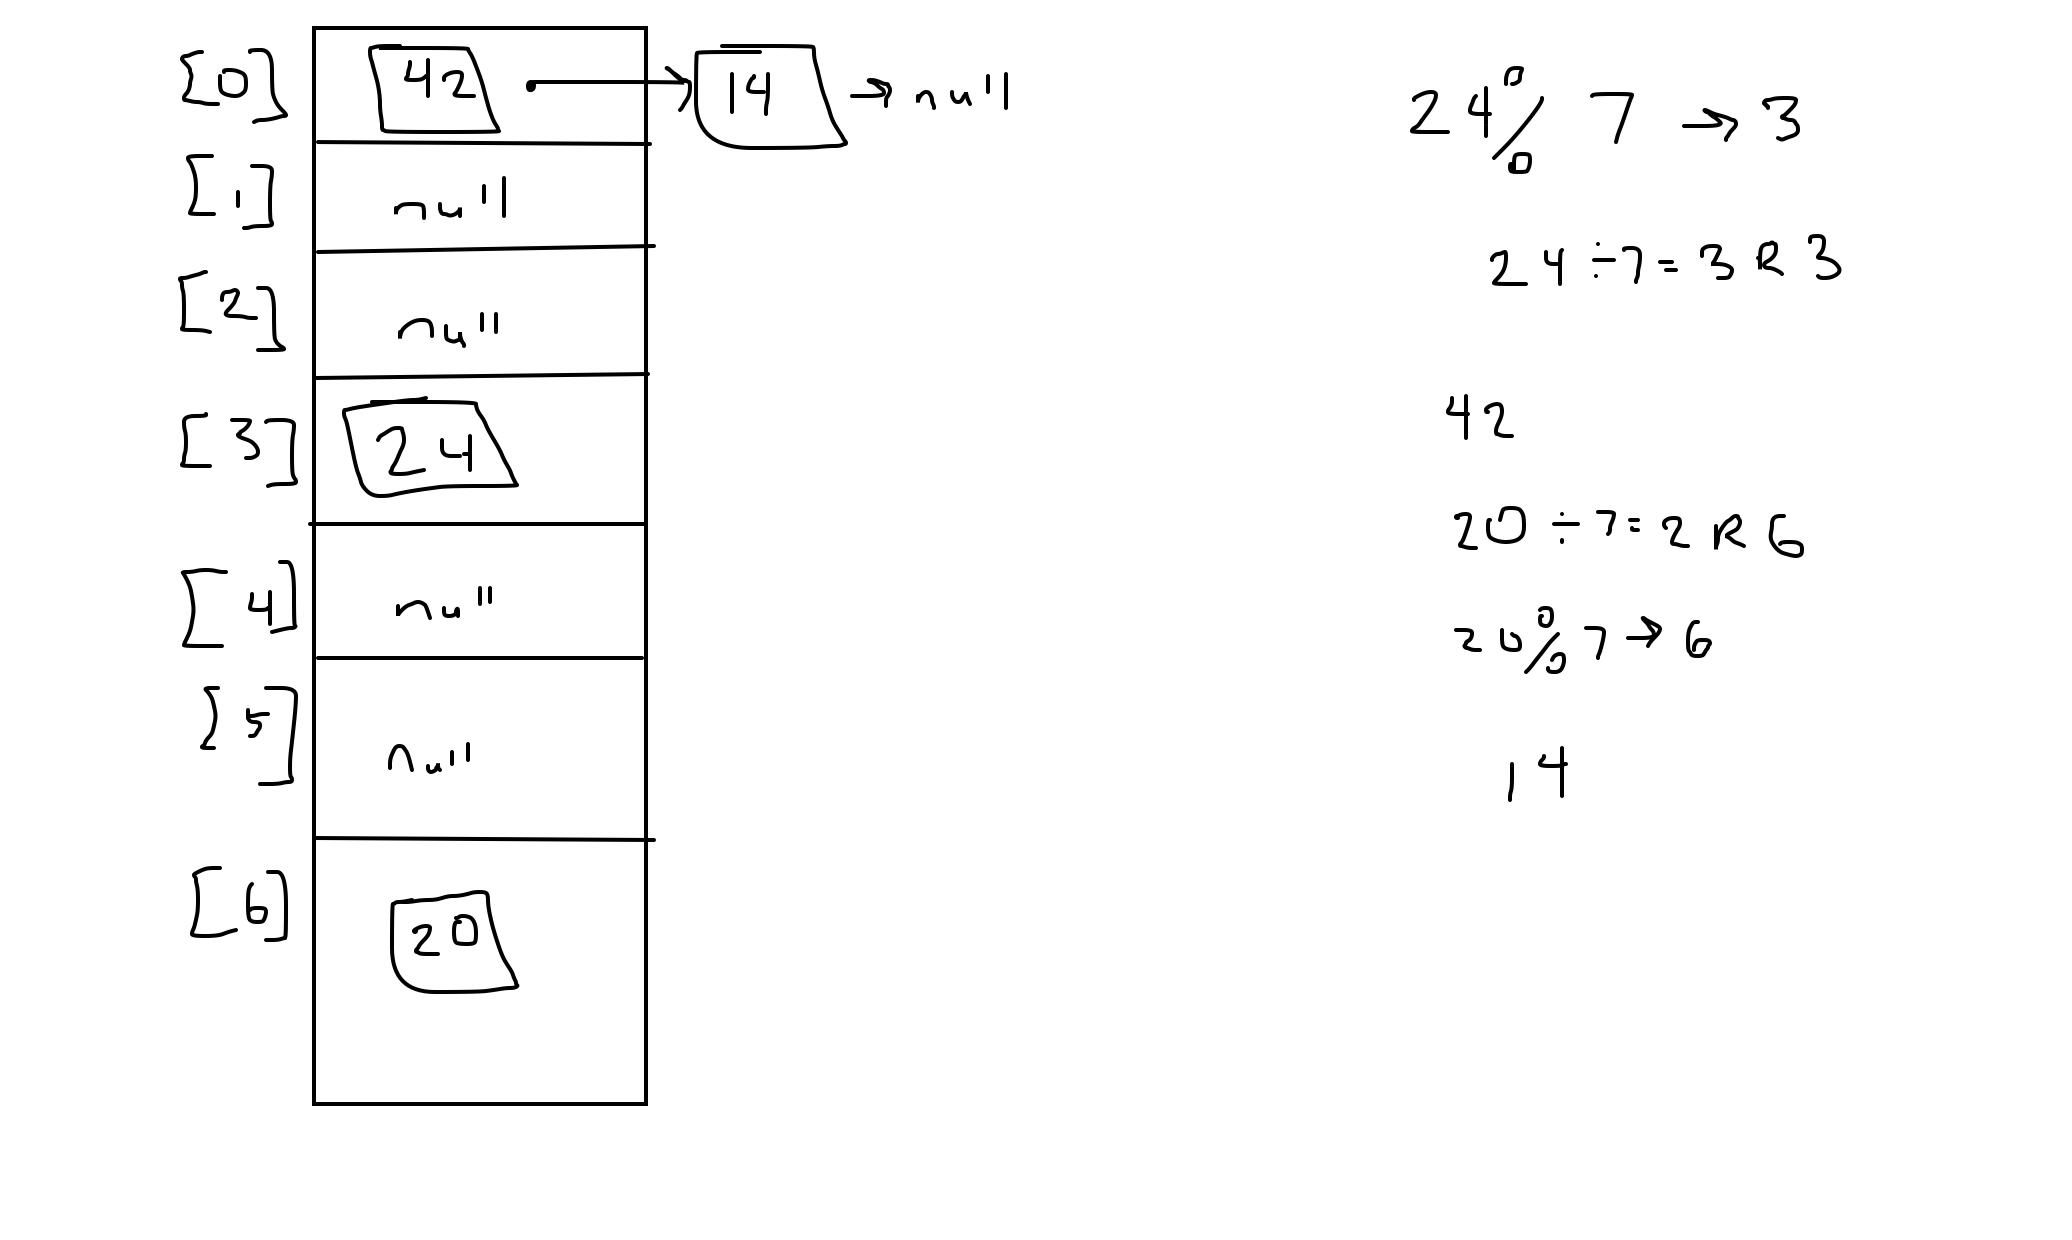 [0] 42 → 14 → null
[1] null
[2] null
[3] 24
[4] null
[5] null
[6] 20
24 % 7 → 3
24 ÷ 7 = 3 R 3
42
20 ÷ 7 = 2 R 6
20 % 7 → 6
14